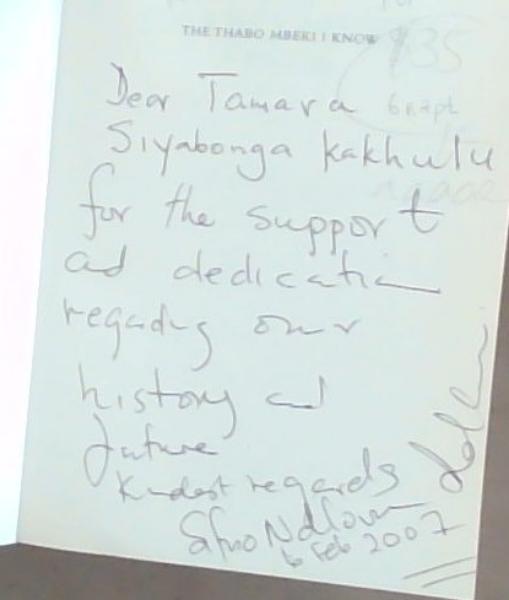 THE THABO MBEKI I KNOW
935
Dear Tamara
Siyabonga kakhulu
for the support
ad dedication
regading our
history ad
future
Kindest regards
Sifiso Ndlovu
6 Feb 2007